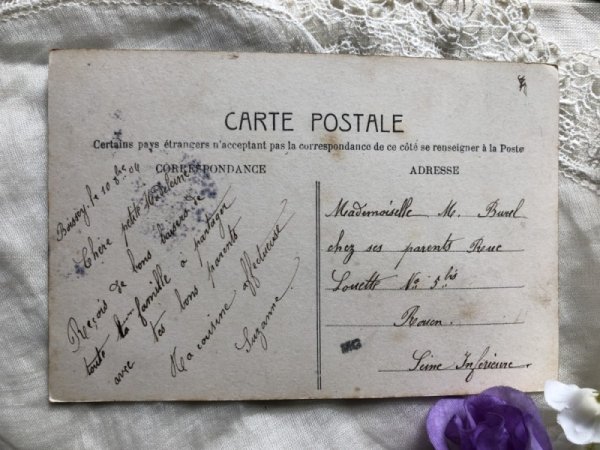 CARTE POSTALE
Certains pays étrangers n'acceptant pas la correspondance de ce côté se renseigner à la Poste
CORRESPONDANCE
le 10 8bre 04
Chère petite Madeleine
Reçois de bons baisers de
toute la famille à partager
avec tes bons parents
Ta cousine affectueuse
Suzanne
ADRESSE
Mademoiselle M. Burel
chez ses parents Rue
Louette No 5 bis
Rouen.
Seine Inférieure
MG